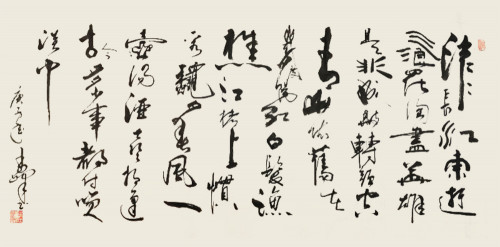 滚滚長江東逝
水浪花淘盡英雄
是非成敗轉頭空
青山依舊在
幾度夕陽紅白髮漁
樵江渚上慣
看秋月春風一
壺濁酒喜相逢
古今多少事都付笑
談中
庚子